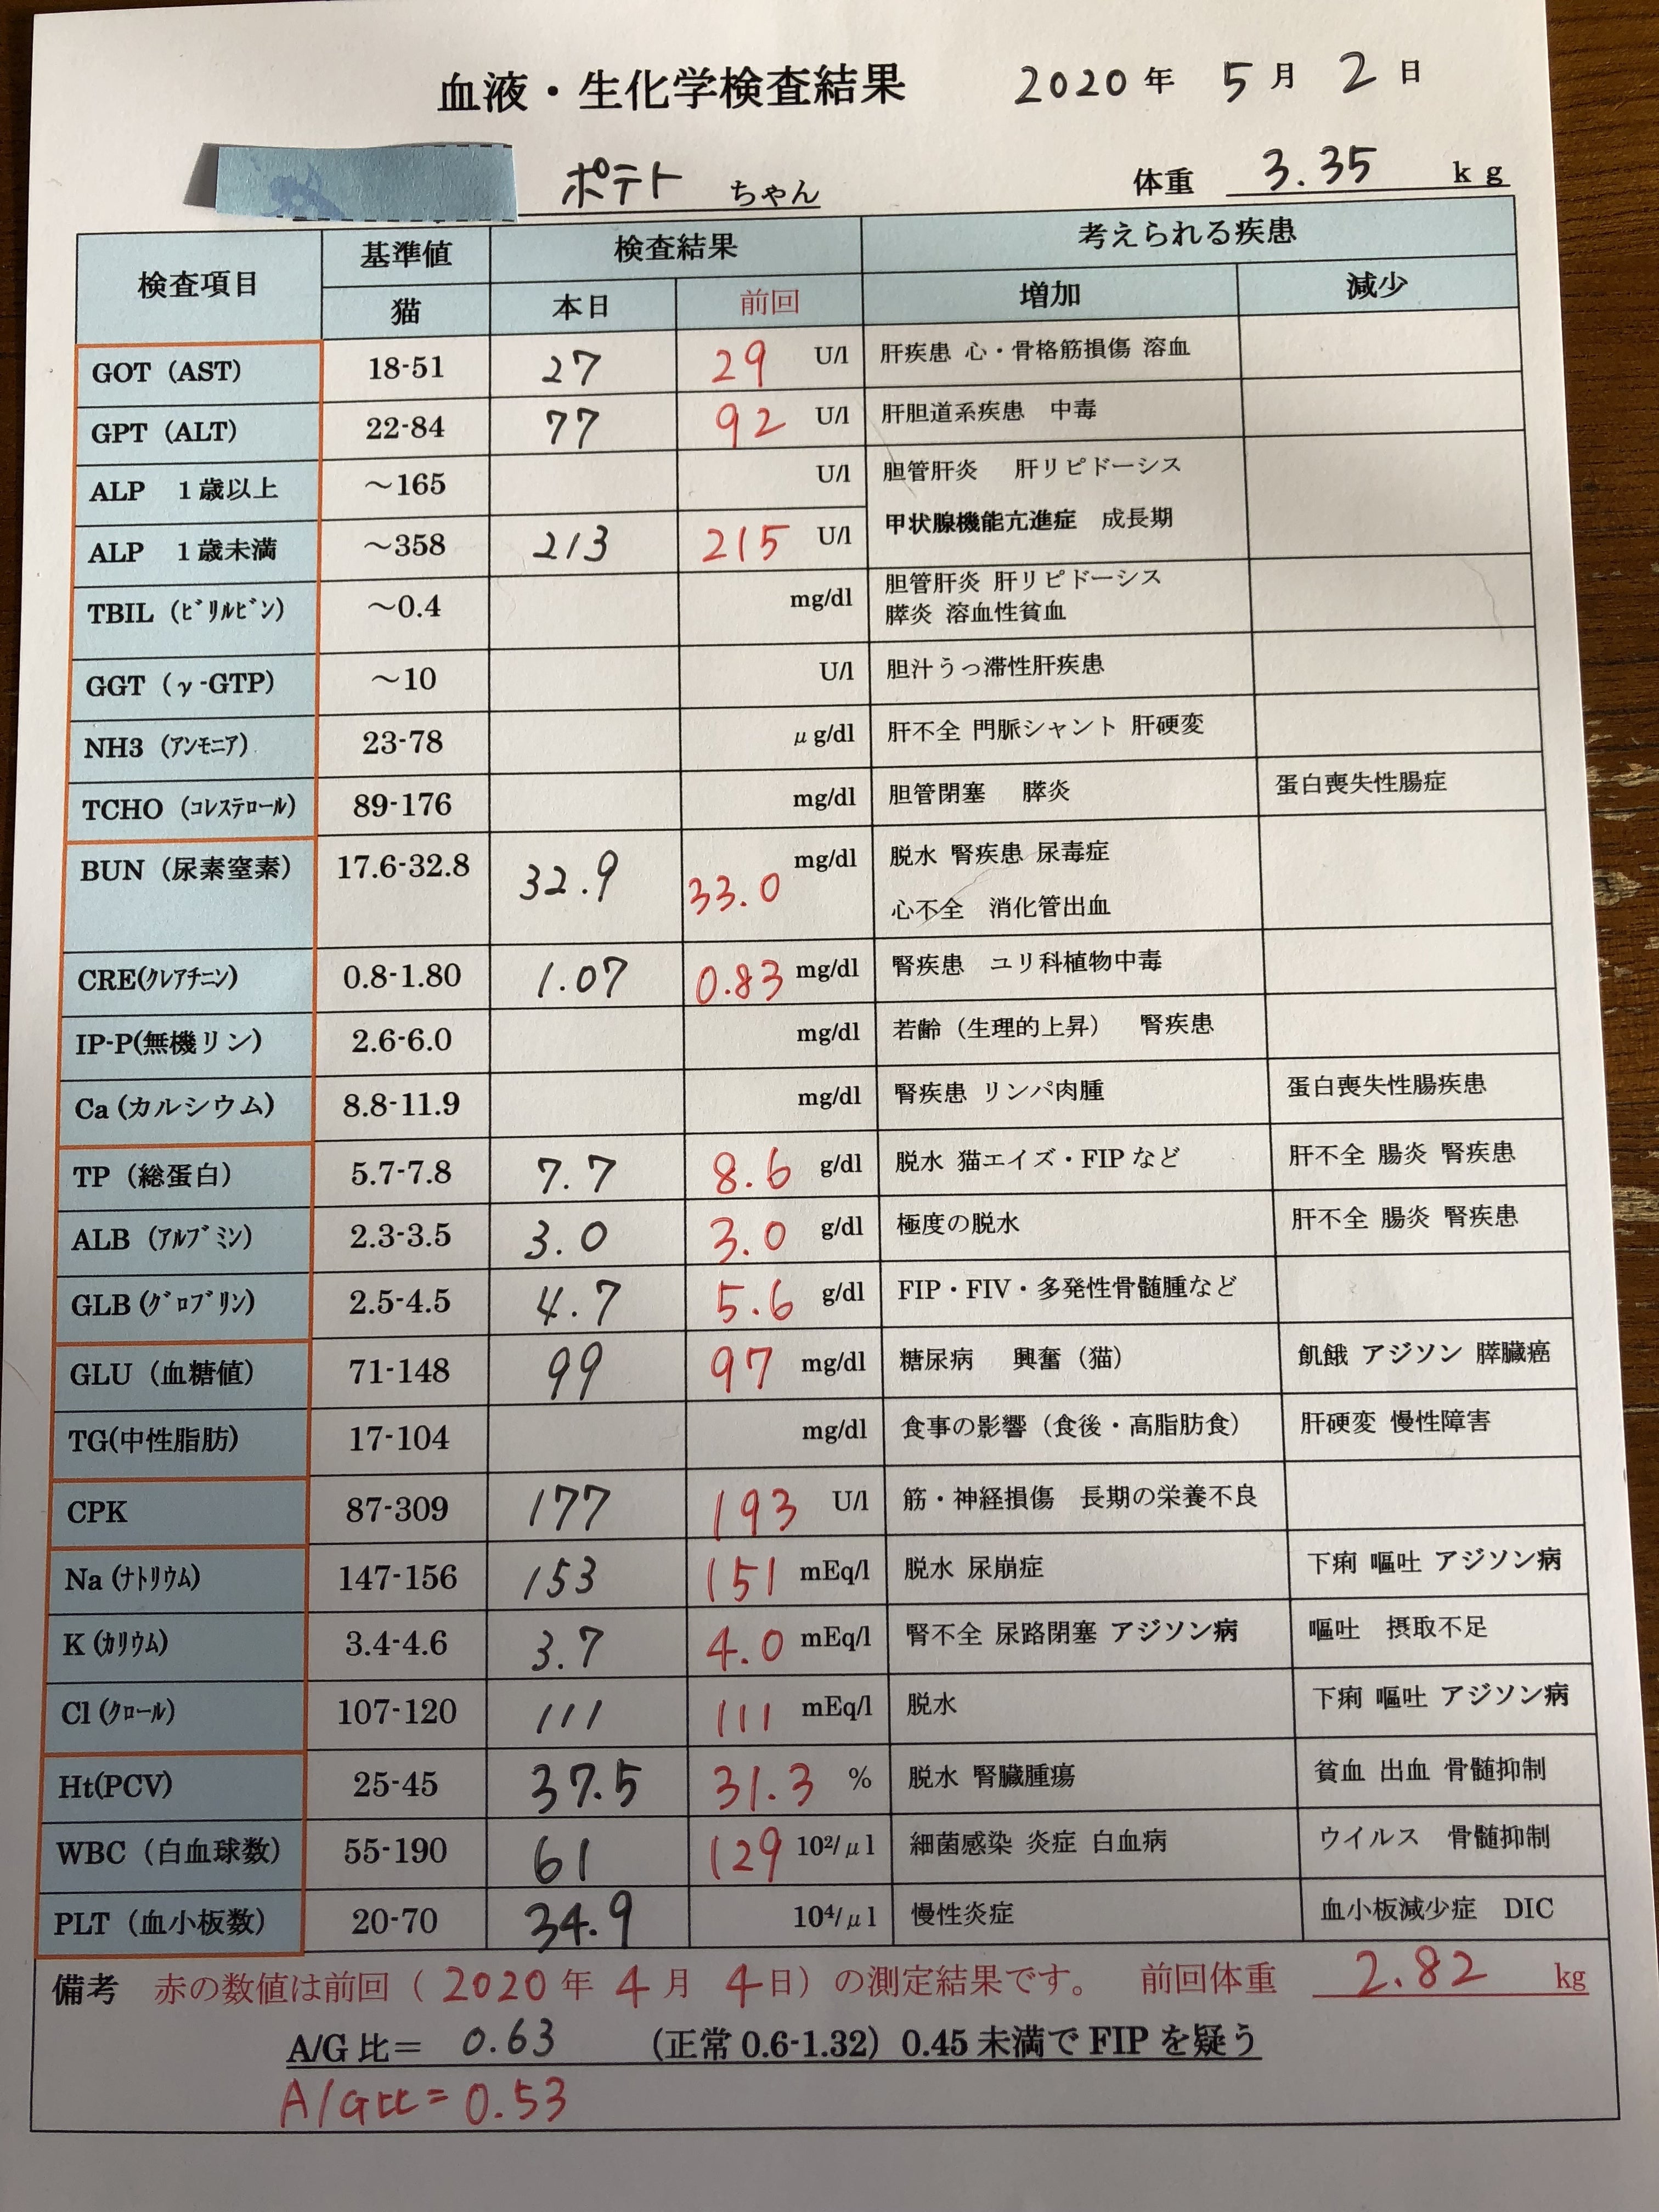 血液・生化学検査結果 2020年 5月 2日
ポテト ちゃん 体重 3.35 kg
検査項目 基準値 検査結果 考えられる疾患
猫 本日 前回 増加 減少
GOT (AST) 18-51 27 29 U/l 肝疾患 心・骨格筋損傷 溶血
GPT (ALT) 22-84 77 92 U/l 肝胆道系疾患 中毒
ALP 1歳以上 ～165 U/l 胆管肝炎 肝リピドーシス
ALP 1歳未満 ～358 213 215 U/l 甲状腺機能亢進症 成長期
TBIL (ﾋﾞﾘﾙﾋﾞﾝ) ～0.4 mg/dl 胆管肝炎 肝リピドーシス
膵炎 溶血性貧血
GGT (γ-GTP) ～10 U/l 胆汁うっ滞性肝疾患
NH3 (ｱﾝﾓﾆｱ) 23-78 μg/dl 肝不全 門脈シャント 肝硬変
TCHO (ｺﾚｽﾃﾛｰﾙ) 89-176 mg/dl 胆管閉塞 膵炎 蛋白喪失性腸症
BUN (尿素窒素) 17.6-32.8 32.9 33.0 mg/dl 脱水 腎疾患 尿毒症
心不全 消化管出血
CRE(ｸﾚｱﾁﾆﾝ) 0.8-1.80 1.07 0.83 mg/dl 腎疾患 ユリ科植物中毒
IP-P(無機リン) 2.6-6.0 mg/dl 若齢（生理的上昇） 腎疾患
Ca (カルシウム) 8.8-11.9 mg/dl 腎疾患 リンパ肉腫 蛋白喪失性腸疾患
TP (総蛋白) 5.7-7.8 7.7 8.6 g/dl 脱水 猫エイズ・FIPなど 肝不全 腸炎 腎疾患
ALB (ｱﾙﾌﾞﾐﾝ) 2.3-3.5 3.0 3.0 g/dl 極度の脱水 肝不全 腸炎 腎疾患
GLB (ｸﾞﾛﾌﾞﾘﾝ) 2.5-4.5 4.7 5.6 g/dl FIP・FIV・多発性骨髄腫など
GLU (血糖値) 71-148 99 97 mg/dl 糖尿病 興奮（猫） 飢餓 アジソン 膵臓癌
TG(中性脂肪) 17-104 mg/dl 食事の影響（食後・高脂肪食） 肝硬変 慢性障害
CPK 87-309 177 193 U/l 筋・神経損傷 長期の栄養不良
Na (ﾅﾄﾘｳﾑ) 147-156 153 151 mEq/l 脱水 尿崩症 下痢 嘔吐 アジソン病
K (ｶﾘｳﾑ) 3.4-4.6 3.7 4.0 mEq/l 腎不全 尿路閉塞 アジソン病 嘔吐 摂取不足
Cl (ｸﾛｰﾙ) 107-120 111 111 mEq/l 脱水 下痢 嘔吐 アジソン病
Ht(PCV) 25-45 37.5 31.3 % 脱水 腎臓腫瘍 貧血 出血 骨髄抑制
WBC (白血球数) 55-190 61 129 10²/μl 細菌感染 炎症 白血病 ウイルス 骨髄抑制
PLT (血小板数) 20-70 34.9 10⁴/μl 慢性炎症 血小板減少症 DIC
備考 赤の数値は前回（2020年 4月 4日）の測定結果です。 前回体重 2.82 kg
A/G比＝ 0.63 （正常0.6-1.32）0.45未満でFIPを疑う
A/G比=0.53